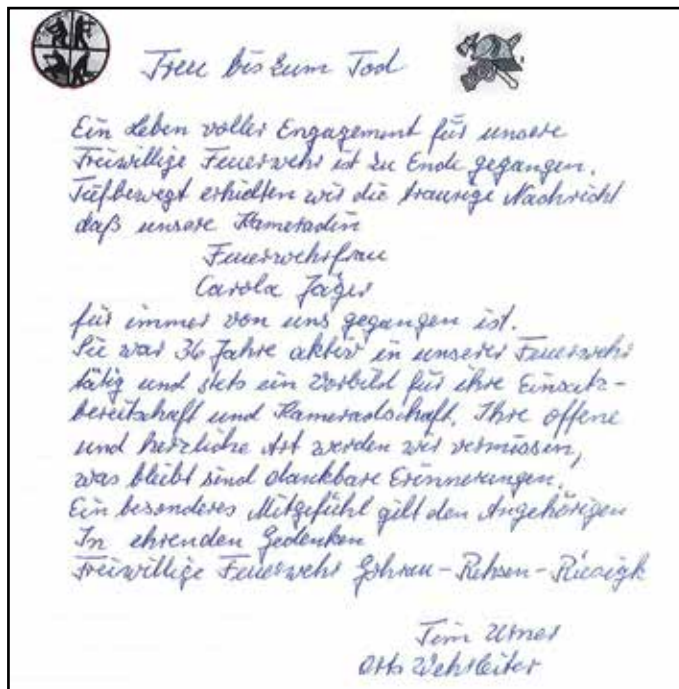 Treu bis zum Tod
Ein Leben voller Engagement für unsere
Freiwillige Feuerwehr ist zu Ende gegangen.
Tiefbewegt erhielten wir die traurige Nachricht
daß unsere Kameradin
Feuerwehrfrau
Carola Jäger
für immer von uns gegangen ist.
Sie war 36 Jahre aktiv in unserer Feuerwehr
tätig und stets ein Vorbild für ihre Einsatz-
bereitschaft und Kameradschaft. Ihre offene
und herzliche Art werden wir vermissen,
was bleibt sind dankbare Erinnerungen.
Ein besonderes Mitgefühl gilt den Angehörigen
In ehrenden Gedenken
Freiwillige Feuerwehr Gohrau-Rehsen-Riesigk
Tim
Orts Wehrleiter